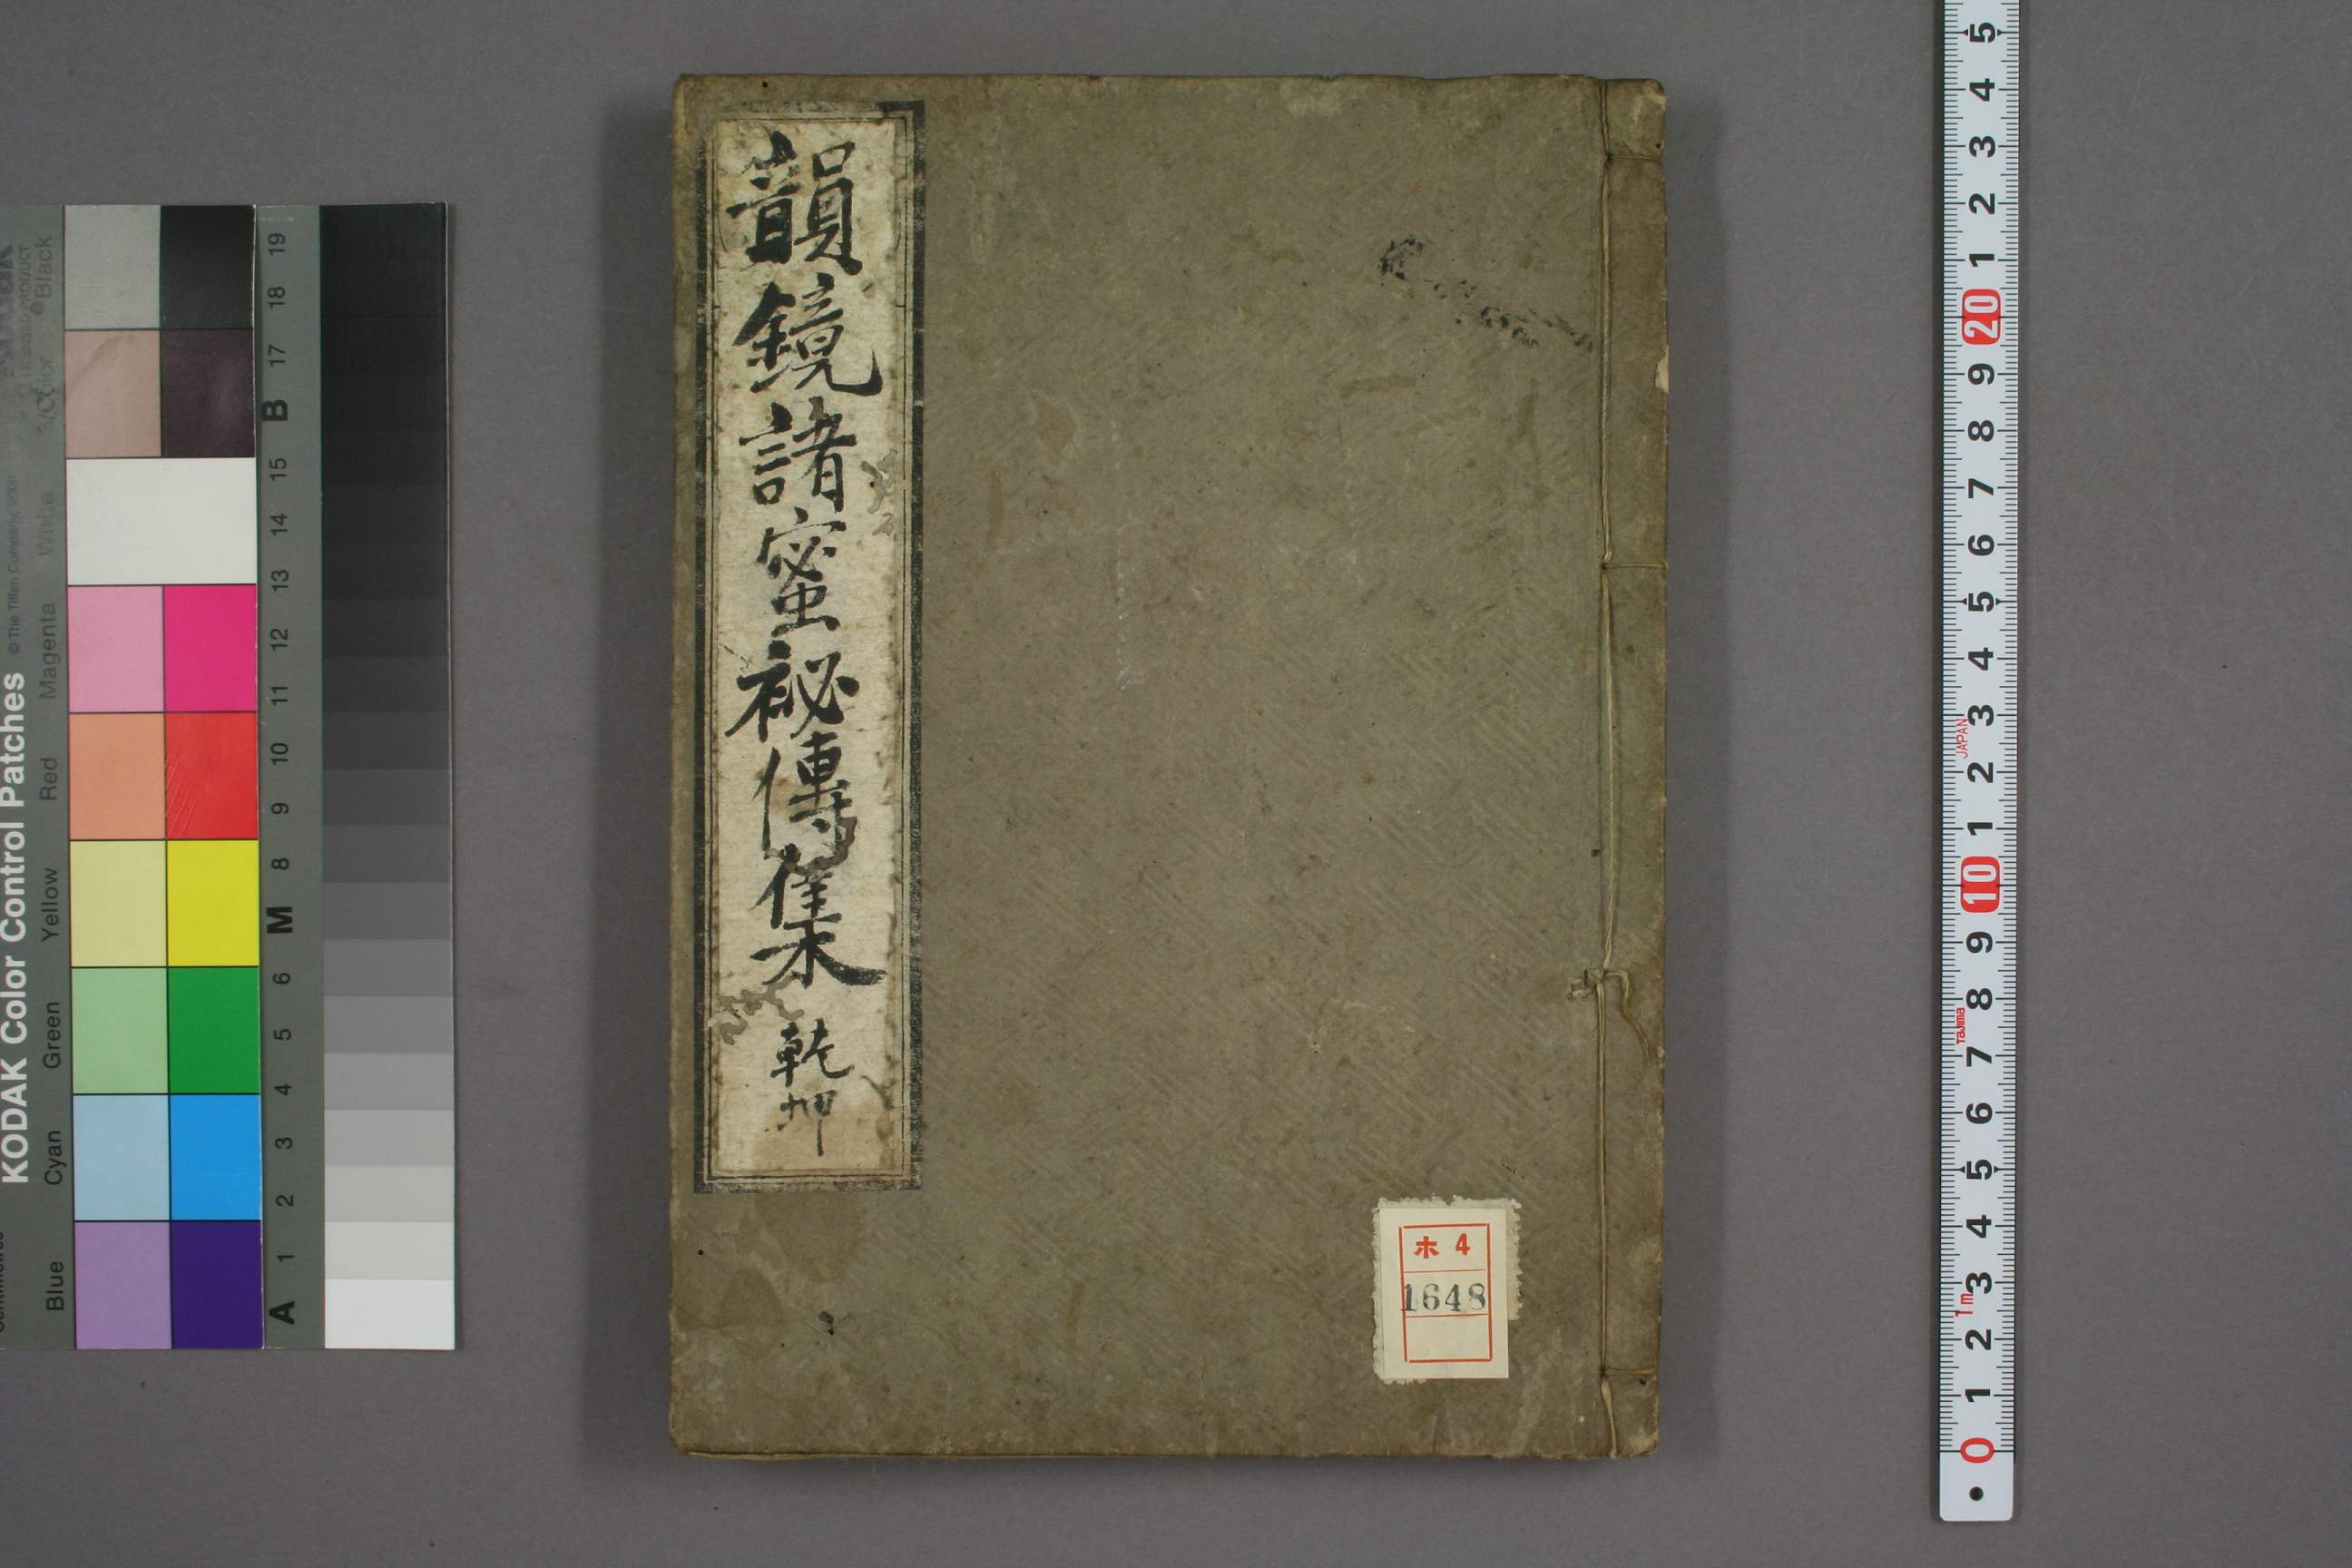 韻鏡諸蜜袐傳集 乾坤
ホ 4
1648
KODAK Color Control Patches
© The Tiffen Company, 2000
Blue Cyan Green Yellow Red Magenta White 3/Color Black
A 1 2 3 4 5 6 M 8 9 10 11 12 13 14 15 B 17 18 19
5 4 3 2 1 20 9 8 7 6 5 4 3 2 1 10 9 8 7 6 5 4 3 2 1 0
JAPAN
Tajima
1m